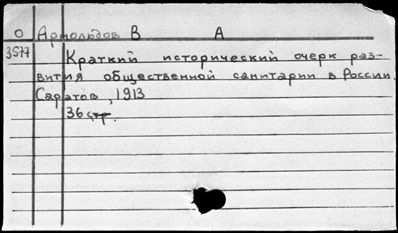 О Арнольдов В А
3577 Краткий исторический очерк раз-
вития общественной санитарии в России.
Саратов, 1913
36 стр.